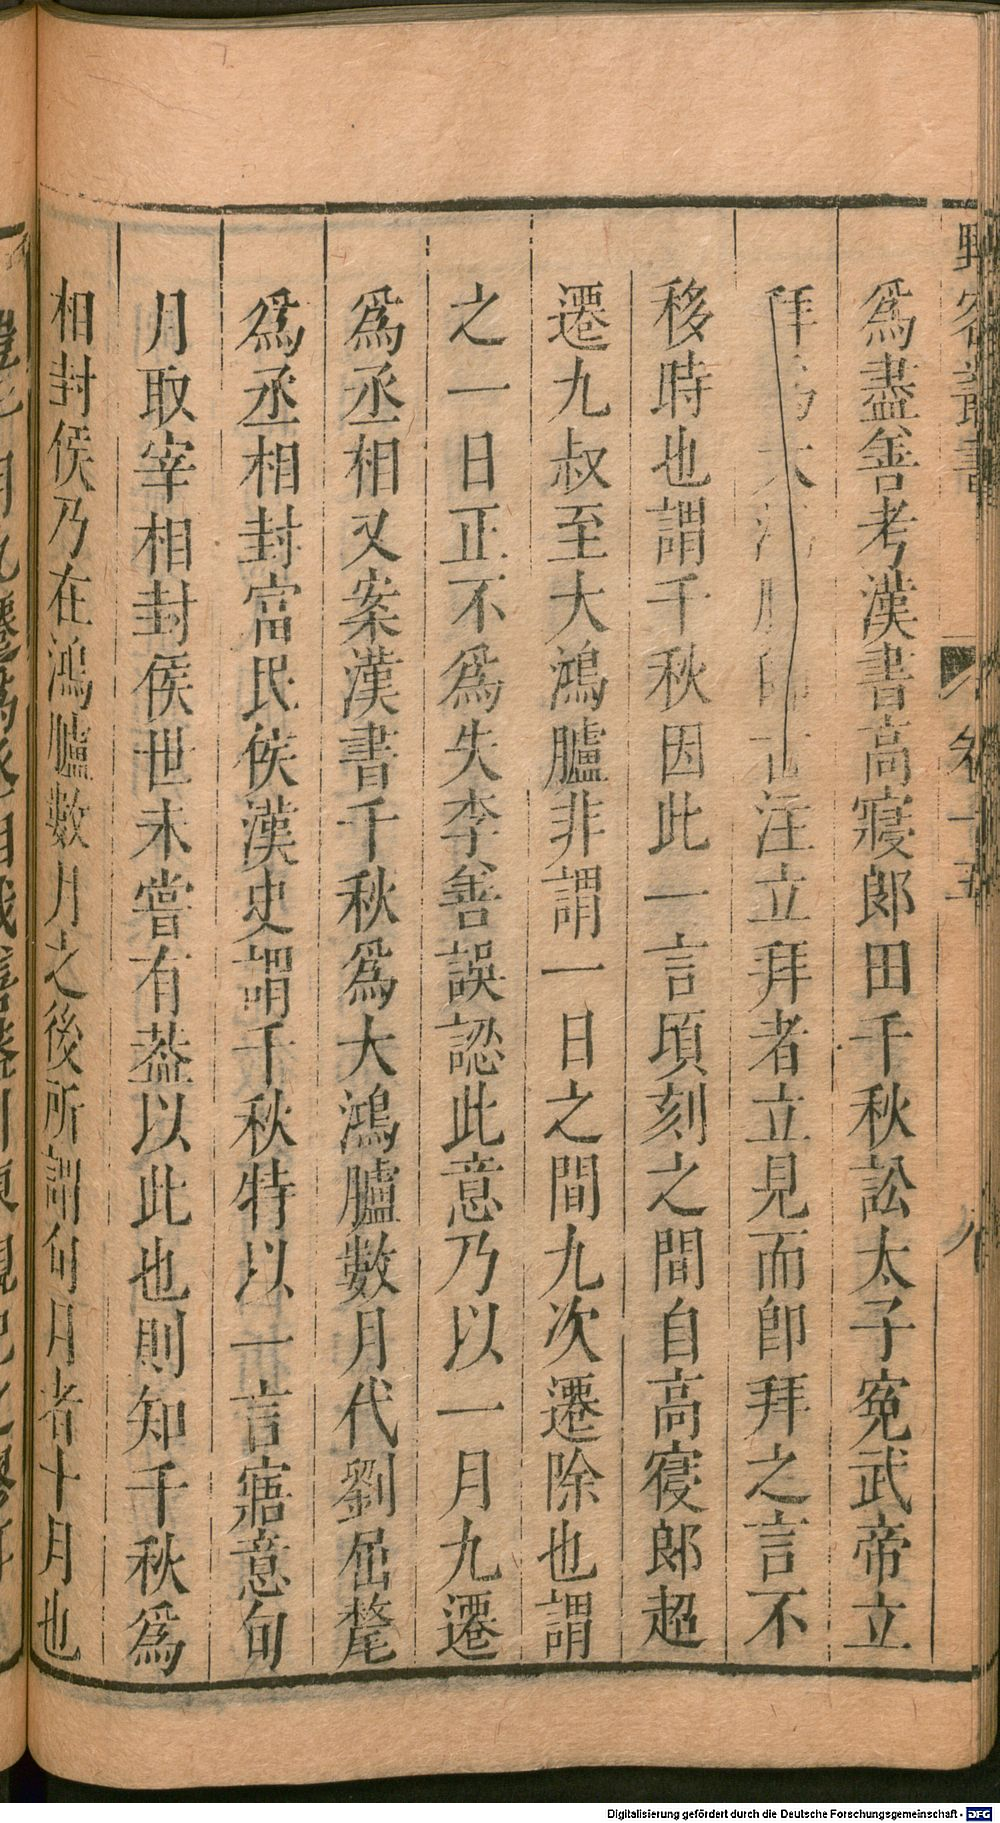 野客叢書 卷十五 八
爲盡善考漢書高寢郎田千秋訟太子寃武帝立
拜爲大鴻臚師古注立拜者立見而即拜之言不
移時也謂千秋因此一言頃刻之間自高寢郎超
遷九叔至大鴻臚非謂一日之間九次遷除也謂
之一日正不爲失李善誤認此意乃以一月九遷
爲丞相又案漢書千秋爲大鴻臚數月代劉屈氂
爲丞相封富民侯漢史謂千秋特以一言寤意旬
月取宰相封侯世未嘗有葢以此也則知千秋爲
相封侯乃在鴻臚數月之後所謂旬月者十月也
Digitalisierung gefördert durch die Deutsche Forschungsgemeinschaft - DFG